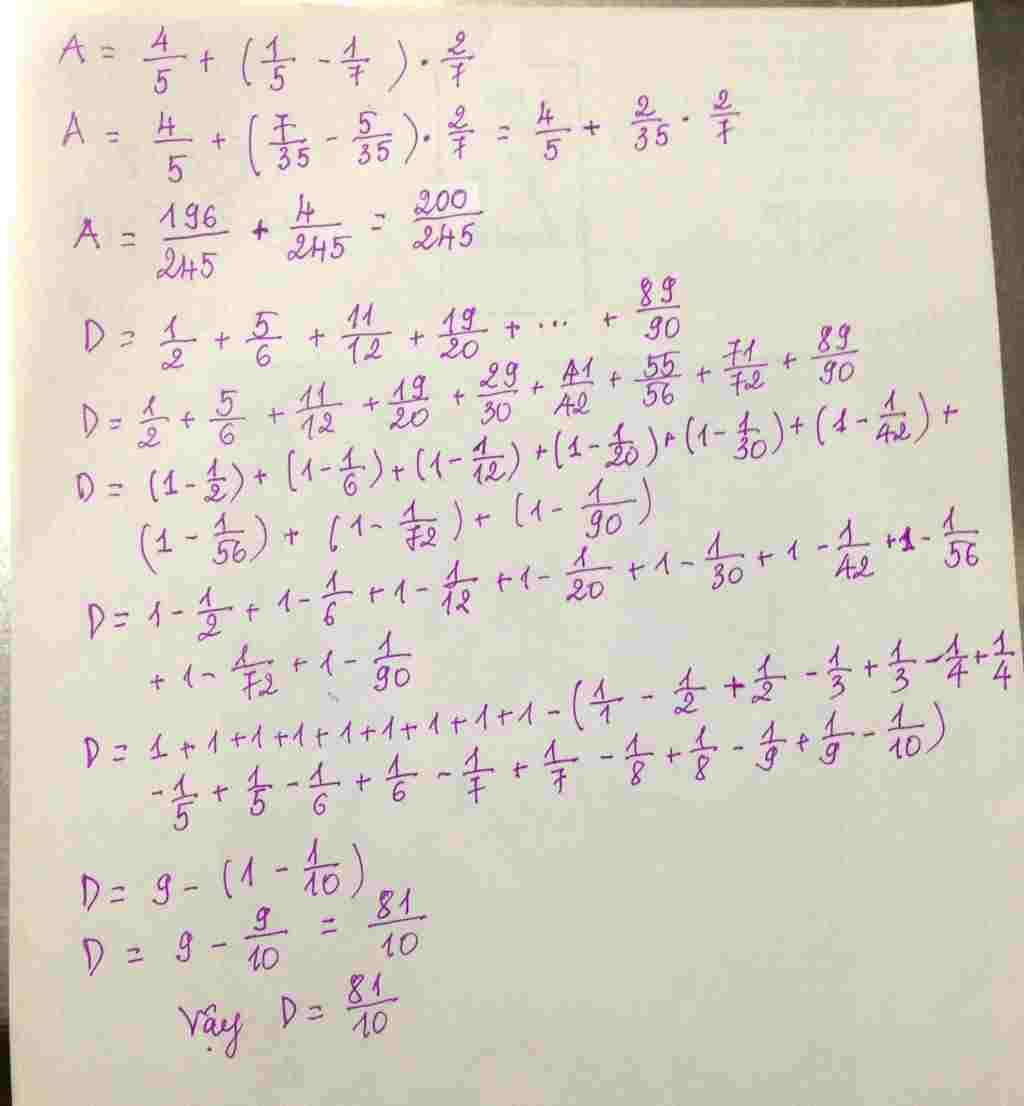 A = 4/5 + (1/5 - 1/7) · 2/7
A = 4/5 + (7/35 - 5/35) · 2/7 = 4/5 + 2/35 · 2/7
A = 196/245 + 4/245 = 200/245
D = 1/2 + 5/6 + 11/12 + 19/20 + ... + 89/90
D = 1/2 + 5/6 + 11/12 + 19/20 + 29/30 + 41/42 + 55/56 + 71/72 + 89/90
D = (1 - 1/2) + (1 - 1/6) + (1 - 1/12) + (1 - 1/20) + (1 - 1/30) + (1 - 1/42) +
(1 - 1/56) + (1 - 1/72) + (1 - 1/90)
D = 1 - 1/2 + 1 - 1/6 + 1 - 1/12 + 1 - 1/20 + 1 - 1/30 + 1 - 1/42 + 1 - 1/56
+ 1 - 1/72 + 1 - 1/90
D = 1 + 1 + 1 + 1 + 1 + 1 + 1 + 1 + 1 - (1/1 - 1/2 + 1/2 - 1/3 + 1/3 - 1/4 + 1/4
- 1/5 + 1/5 - 1/6 + 1/6 - 1/7 + 1/7 - 1/8 + 1/8 - 1/9 + 1/9 - 1/10)
D = 9 - (1 - 1/10)
D = 9 - 9/10 = 81/10
Vậy D = 81/10